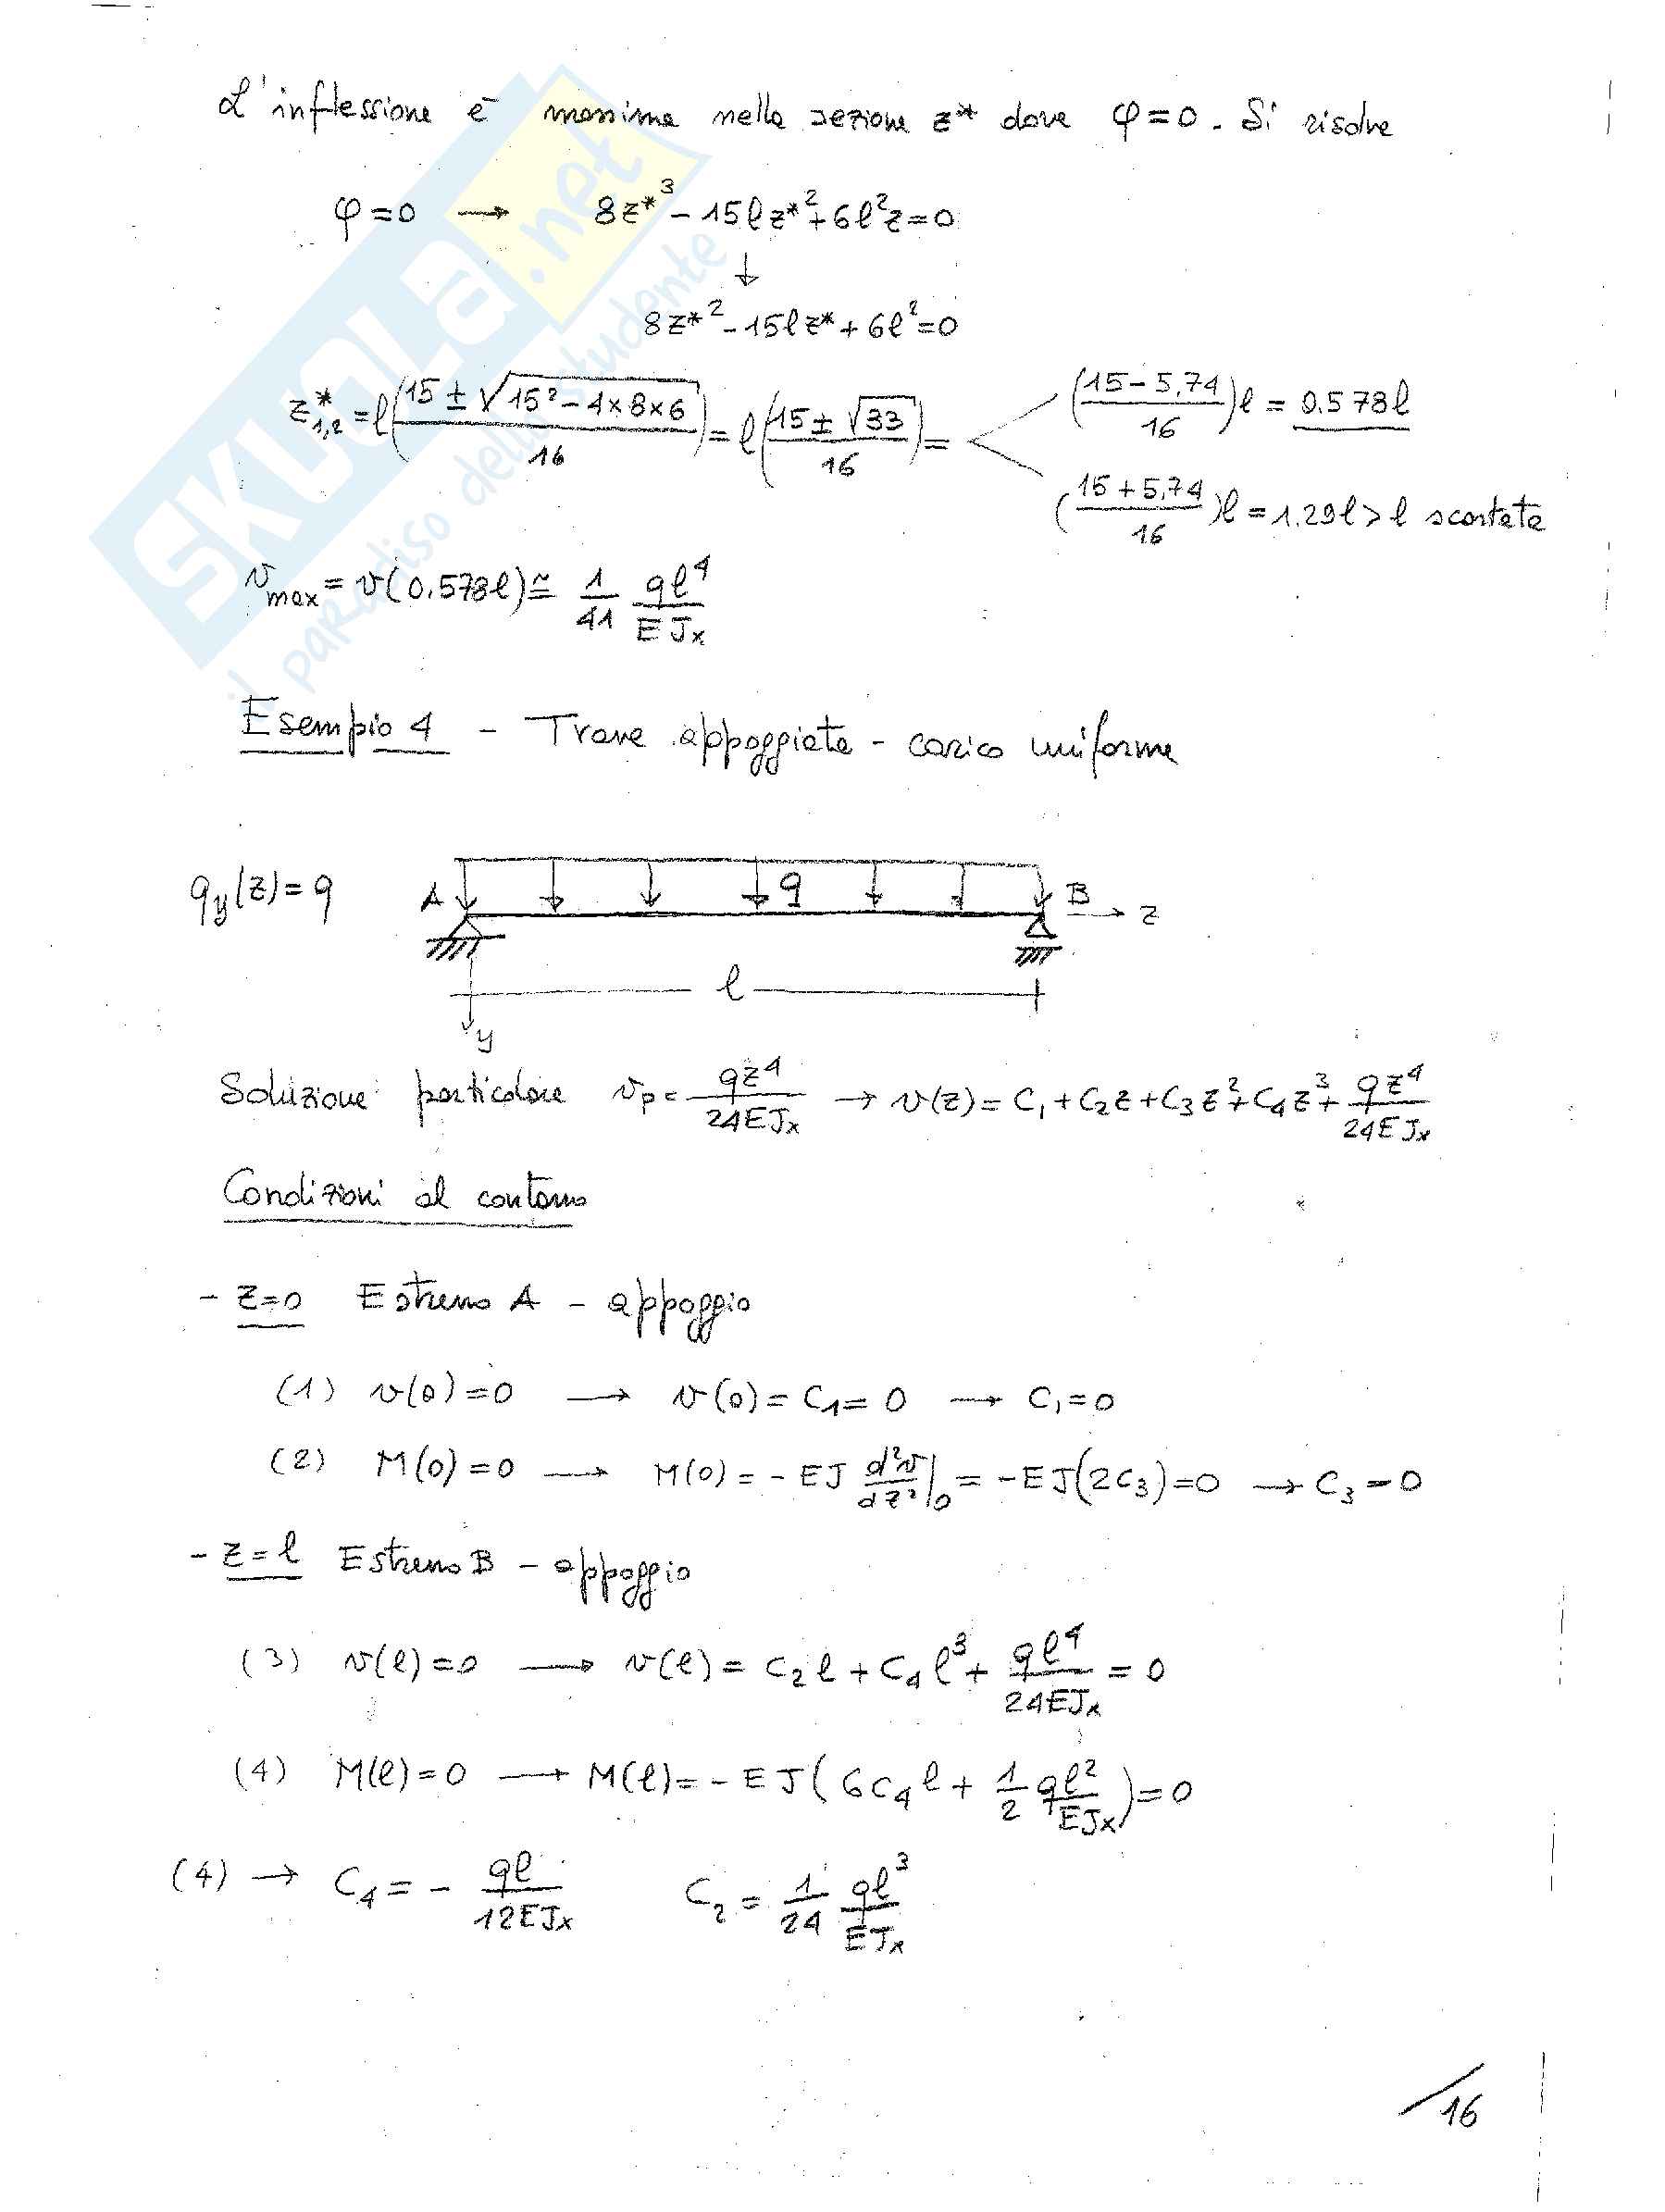 L'inflessione è massima nella sezione z* dove φ=0. Si risolve
φ=0 → 8z*³ - 15lz*² + 6l²z = 0
↓
8z*² - 15lz* + 6l² = 0
z*₁,₂ = l((15 ± √(15² - 4×8×6))/16) = l((15 ± √33)/16) =
((15 - 5,74)/16)l = 0.578l
((15 + 5,74)/16)l = 1.29l > l scartata
v_max = v(0.578l) ≅ 1/41 ql⁴/EJx
Esempio 4 - Trave appoggiata - carico uniforme
q_y(z) = q
A q B z
l
y
Soluzione particolare v_p = qz⁴/24EJx → v(z) = C₁ + C₂z + C₃z² + C₄z³ + qz⁴/24EJx
Condizioni al contorno
- z=0 Estremo A - appoggio
(1) v(0)=0 → v(0) = C₁ = 0 → C₁ = 0
(2) M(0)=0 → M(0) = -EJ d²v/dz²|₀ = -EJ(2C₃)=0 → C₃ = 0
- z=l Estremo B - appoggio
(3) v(l)=0 → v(l) = C₂l + C₄l³ + ql⁴/24EJx = 0
(4) M(l)=0 → M(l) = -EJ(6C₄l + 1/2 ql²/EJx) = 0
(4) → C₄ = - ql/12EJx C₂ = 1/24 ql³/EJx
16
SKUOLA.net
il paradiso dello studente